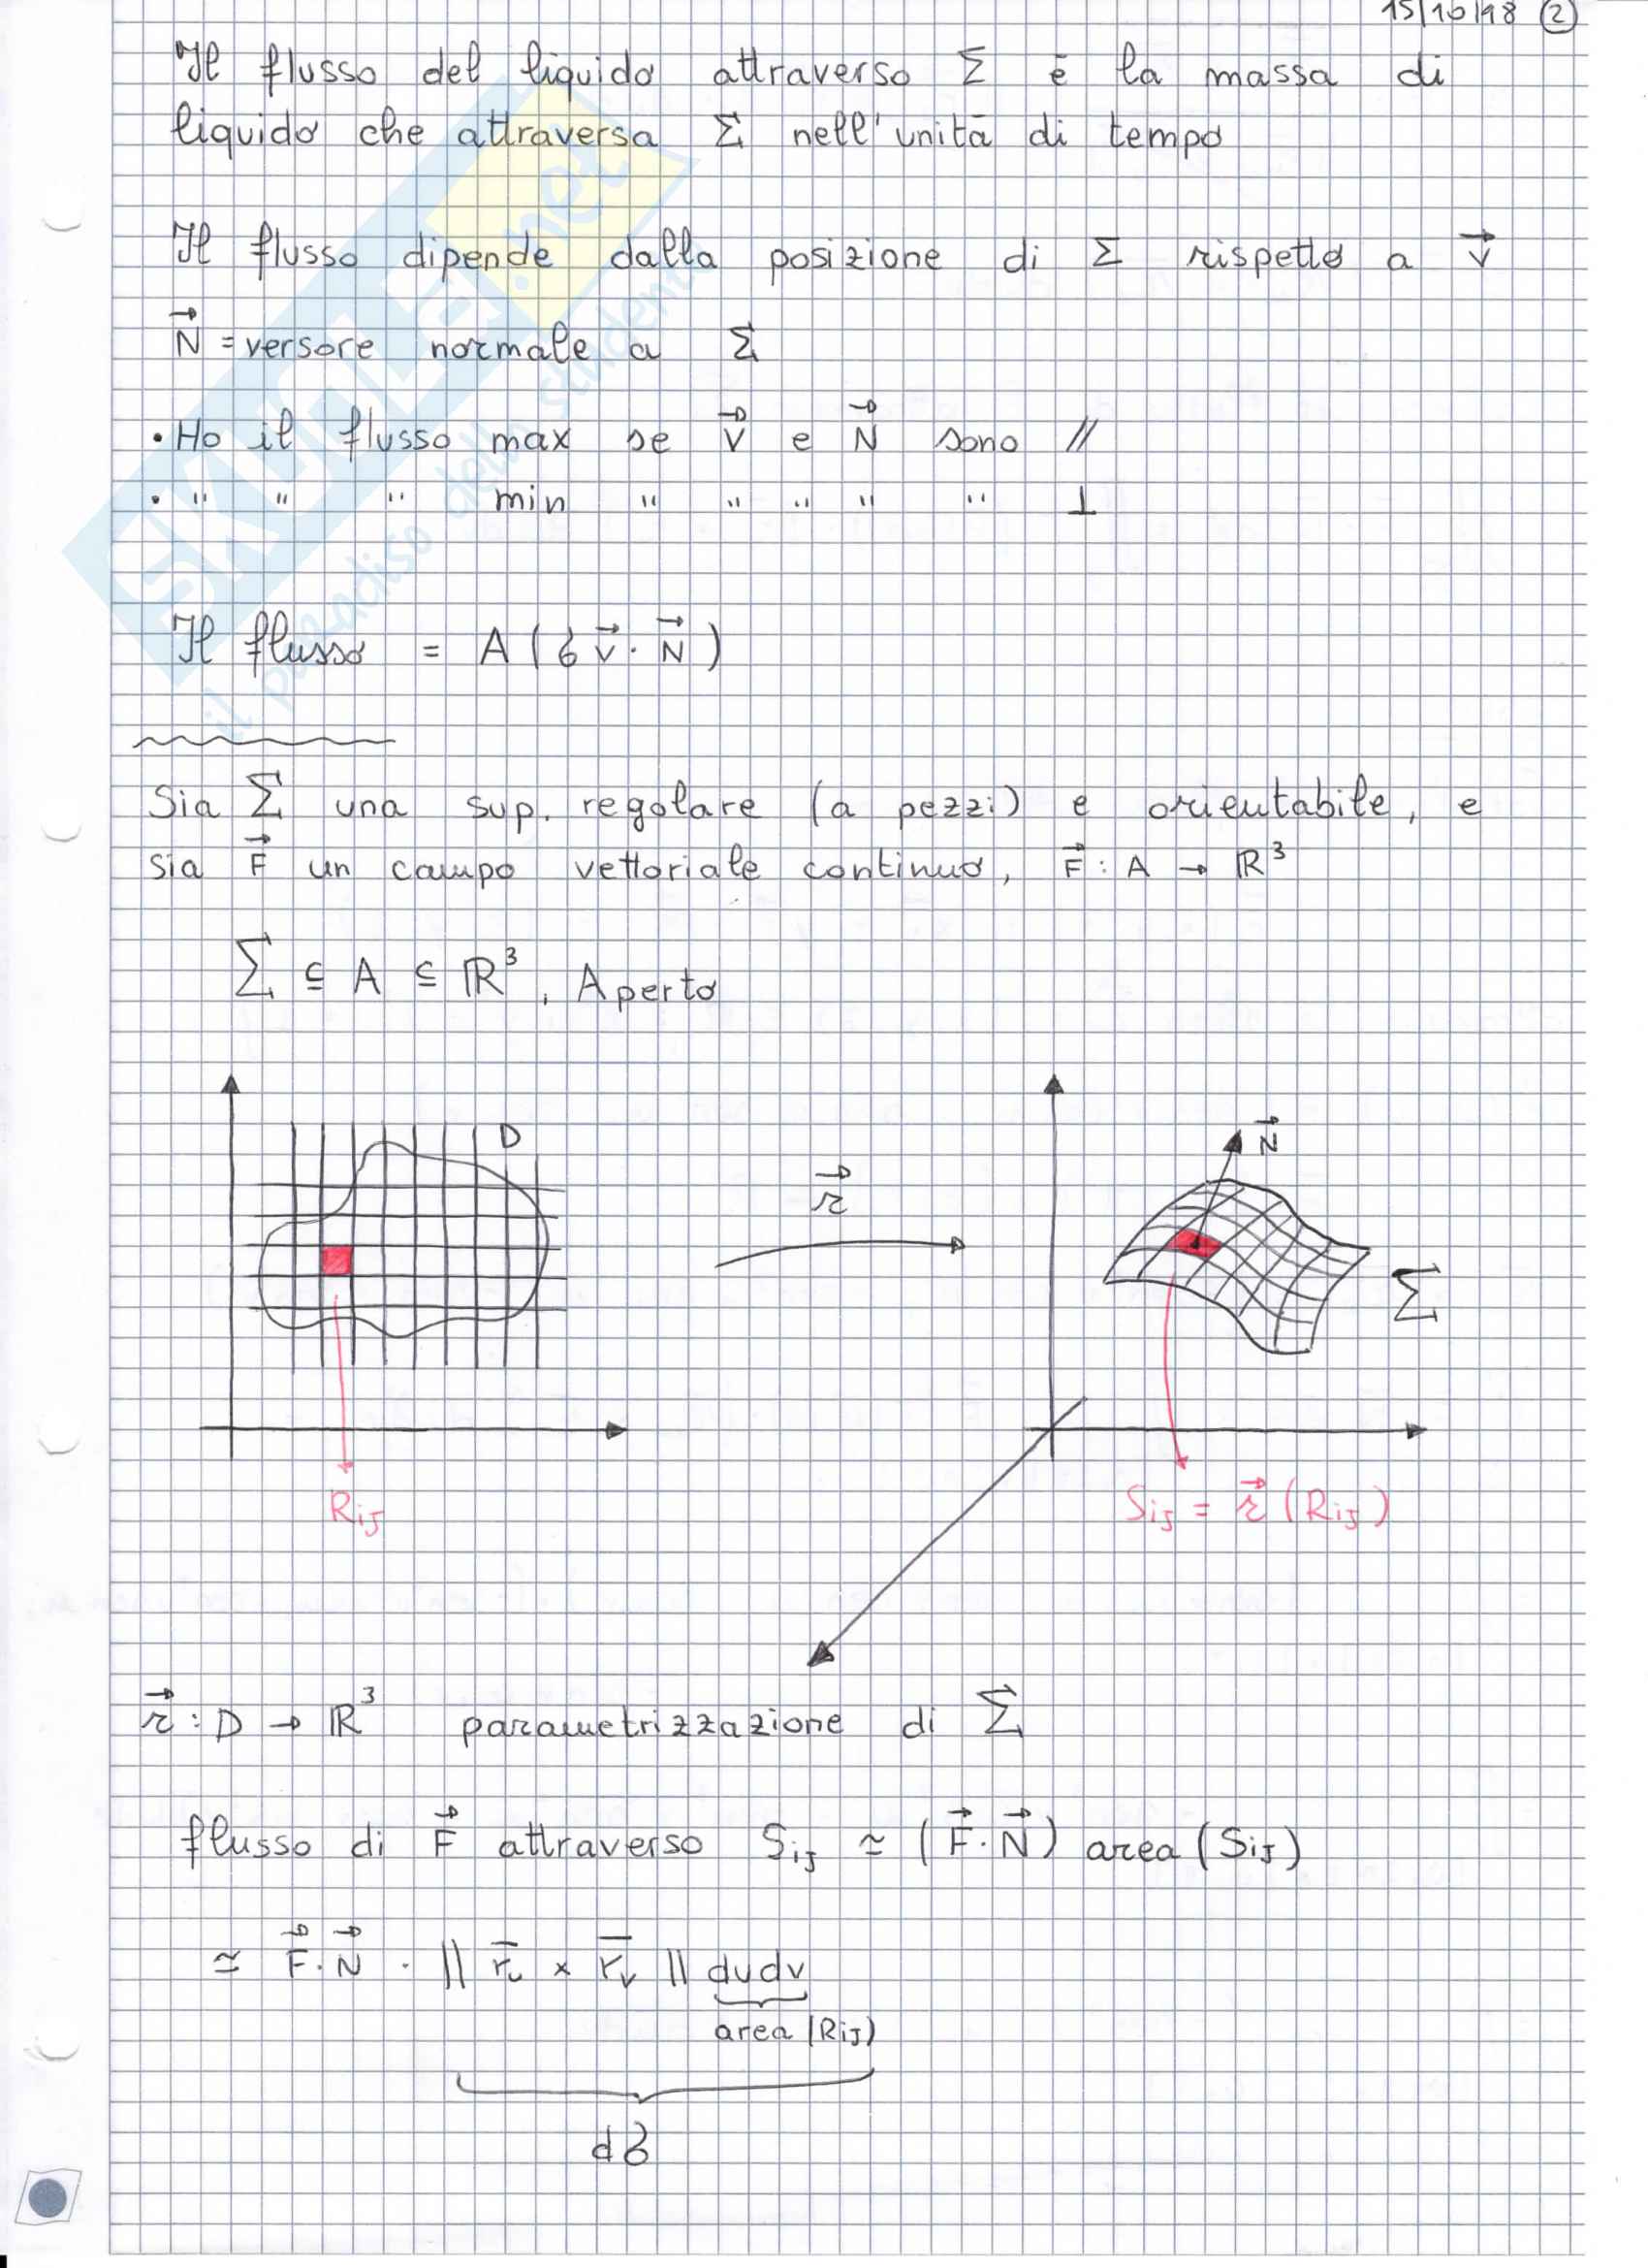 15/10/98 2
Il flusso del liquido attraverso Σ è la massa di
liquido che attraversa Σ nell'unità di tempo
Il flusso dipende dalla posizione di Σ rispetto a v⃗
N⃗ = versore normale a Σ
• Ho il flusso max se v⃗ e N⃗ sono //
• " " " min " " " " " ⊥
Il flusso = A (δ v⃗ · N⃗)
Sia Σ una sup. regolare (a pezzi) e orientabile, e
sia F⃗ un campo vettoriale continuo, F⃗ : A → ℝ³
Σ ⊆ A ⊆ ℝ³, A aperto
D
r⃗
N⃗
Σ
Rij
Sij = r⃗ (Rij)
r⃗ : D → ℝ³ parametrizzazione di Σ
flusso di F⃗ attraverso Sij ≃ (F⃗ · N⃗) area (Sij)
≃ F⃗ · N⃗ · || r̅u × r̅v || du dv
area (Rij)
dδ
SKUOLA.net
il paradiso dello studente